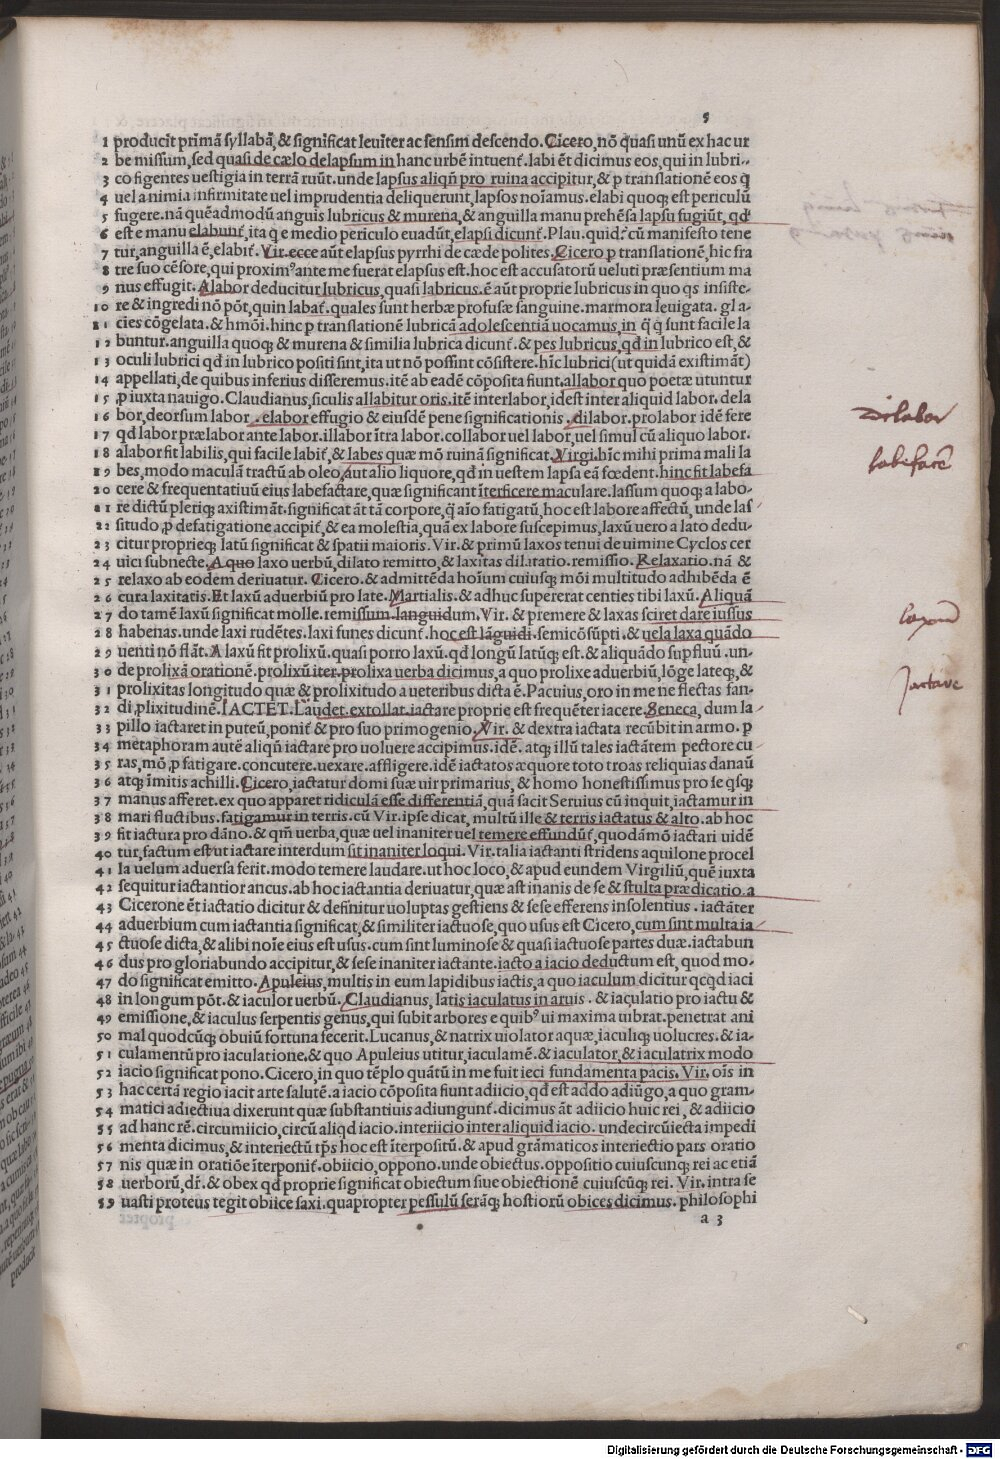 5
1 producit primã syllabã, & significat leuiter ac sensim descendo. Cicero, nõ q̃uasi unũ ex hac ur
2 be missum, sed quasi de cælo delapsum in hanc urbẽ intuenť. labi ẽt dicimus eos, qui in lubri-
3 co figentes uestigia in terrã ruũt. unde lapsus aliqñ pro ruina accipitur, & p translationẽ eos q̃
4 uel a nimia infirmitate uel imprudentia deliquerunt, lapsos noĩamus. elabi quoqʒ est periculũ
5 fugere. nã quẽadmodũ anguis lubricus & murena, & anguilla manu prehẽsa lapsu fugiũt, qđ
6 est e manu elabunť, ita q̃ e medio periculo euadũt, elapsi dicunť. Plau. quid? cũ manifesto tene
7 tur, anguilla ẽ, elabiť. Vir. ecce aũt elapsus pyrrhi de cæde polites. Cicero p translationẽ, hic fra
8 tre suo cẽsore, qui proximꝰ ante me fuerat elapsus est. hoc est accusatorũ ueluti præsentium ma
9 nus effugit. A labor deducitur lubricus, quasi labricus. ẽ aũt proprie lubricus in quo qs insiste-
10 re & ingredi nõ põt, quin labať. quales sunt herbæ profusæ sanguine. marmora leuigata. gla-
11 cies cõgelata. & hmõi. hinc p translationẽ lubricã adolescentiã uocamus, in q̃ q̃ sunt facile la
12 buntur. anguilla quoqʒ & murena & similia lubrica dicunť. & pes lubricus, qđ in lubrico est, &
13 oculi lubrici qđ in lubrico positi sint, ita ut nõ possint cõsistere. hĩc lubrici (ut quidã existimãt)
14 appellati, de quibus inferius disseremus. itẽ ab eadẽ cõposita fiunt, allabor quo poetæ utuntur
15 ꝓ iuxta nauigo. Claudianus, siculis allabitur oris. itẽ interlabor, idest inter aliquid labor. dela
16 bor, deorsum labor. elabor effugio & eiusdẽ pene significationis. dilabor. prolabor idẽ fere
17 qđ labor prælabor ante labor. illabor ĩtra labor. collabor uel labor, uel simul cũ aliquo labor.
18 a labor fit labilis, qui facile labiť, & labes quæ mõ ruinã significat. Virgi. hĩc mihi prima mali la
19 bes, modo maculã tractũ ab oleo, aut alio liquore, qđ in uestem lapsa eã fœdent. hinc fit labefa
20 cere & frequentatiuũ eius labefactare, quæ significant ĩterficere maculare. lassum quoqʒ a labo-
21 re dictũ pleriqʒ axistimãt. significat ãt tã corpore, q̃ aĩo fatigatũ, hoc est labore affectũ, unde las
22 situdo ꝓ desatigatione accipiť, & ea molestia, quã ex labore suscepimus, laxũ uero a lato dedu-
23 citur proprieqʒ latũ significat & spatii maioris. Vir. & primũ laxos tenui de uimine Cyclos cer
24 uici subnecte. A quo laxo uerbũ, dilato remitto, & laxitas dilatatio. remissio. Relaxatio. nã &
25 relaxo ab eodem deriuatur. Cicero. & admittẽda hoĩum cuiusqʒ mõi multitudo adhibẽda ẽ
26 cura laxitatis. Et laxũ aduerbiũ pro late. Martialis. & adhuc supererat centies tibi laxũ. Aliquã
27 do tamẽ laxũ significat molle. remissum. languidum. Vir. & premere & laxas sciret dare iussus
28 habenas. unde laxi rudẽtes. laxi funes dicunť. hoc est lãguidi. semicõsũpti. & uela laxa quãdo
29 uenti nõ flãt. A laxũ fit prolixũ. quasi porro laxũ. qđ longũ latũqʒ est. & aliquãdo supfluũ. un-
30 de prolixã orationẽ. prolixũ iter. prolixa uerba dicimus, a quo prolixe aduerbiũ, lõge lateqʒ, &
31 prolixitas longitudo quæ & prolixitudo a ueteribus dicta ẽ. Pacuius, oro in me ne flectas fan-
32 di ꝓlixitudinẽ. IACTET. Laudet. extollat. iactare proprie est frequẽter iacere. Seneca, dum la
33 pillo iactaret in puteũ, poniť & pro suo primogenio. Vir. & dextra iactata recũbit in armo. p
34 metaphoram autẽ aliqñ iactare pro uoluere accipimus. idẽ. atqʒ illũ tales iactãtem pectore cu
35 ras, mõ ꝓ fatigare. concutere. uexare. affligere. idẽ iactatos æquore toto troas reliquias danaũ
36 atqʒ ĩmitis achilli. Cicero, iactatur domi suæ uir primarius, & homo honestissimus pro se qsqʒ
37 manus afferet. ex quo apparet ridiculã esse differentiã, quã facit Seruius cũ inquit, iactamur in
38 mari fluctibus. fatigamur in terris. cũ Vir. ipse dicat, multũ ille & terris iactatus & alto. ab hoc
39 fit iactura pro dãno. & qm̃ uerba, quæ uel inaniter uel temere effundũť, quodãmõ iactari uidẽ
40 tur, factum est ut iactare interdum sit inaniter loqui. Vir. talia iactanti stridens aquilone procel
41 la uelum aduersa ferit. modo temere laudare. ut hoc loco, & apud eundem Virgiliũ, quẽ iuxta
42 sequitur iactantior ancus. ab hoc iactantia deriuatur, quæ ast inanis de se & stulta prædicatio. a
43 Cicerone ẽt iactatio dicitur & definitur uoluptas gestiens & sese efferens insolentius. iactãter
44 aduerbium cum iactantia significat, & similiter iactuose, quo usus est Cicero, cum sint multa ia
45 ctuose dicta, & alibi noĩe eius est usus. cum sint luminose & quasi iactuose partes duæ. iactabun
46 dus pro gloriabundo accipitur, & sese inaniter iactante. iacto a iacio deductum est, quod mo-
47 do significat emitto. Apuleius, multis in eum lapidibus iactis, a quo iaculum dicitur qcqd iaci
48 in longum põt. & iaculor uerbũ. Claudianus, latis iaculatus in aruis. & iaculatio pro iactu &
49 emissione, & iaculus serpentis genus, qui subit arbores e quibꝰ ui maxima uibrat. penetrat ani
50 mal quodcũqʒ obuiũ fortuna fecerit. Lucanus, & natrix uiolator aquæ, iaculiqʒ uolucres. & ia-
51 culamentũ pro iaculatione. & quo Apuleius utitur, iaculamẽ. & iaculator, & iaculatrix modo
52 iacio significat pono. Cicero, in quo tẽplo quãtũ in me fuit ieci fundamenta pacis. Vir. oĩs in
53 hac certã regio iacit arte salutẽ. a iacio cõposita fiunt adiicio, qđ est addo adiũgo, a quo gram-
54 matici adiectiua dixerunt quæ substantiuis adiungunť. dicimus ãt adiicio huic rei, & adiicio
55 ad hanc rẽ. circumiicio, circũ aliqd iacio. interiicio inter aliquid iacio. unde circũiecta impedi
56 menta dicimus, & interiectũ tp̃s hoc est ĩterpositũ. & apud grãmaticos interiectio pars oratio
57 nis quæ in oratiõe ĩterponiť. obiicio, oppono. unde obiectus. oppositio cuiuscunqʒ rei ac etiã
58 uerborũ, dr̃. & obex qđ proprie significat obiectum siue obiectionẽ cuiuscũqʒ rei. Vir. intra se
59 uasti proteus tegit obiice saxi. quapropter pessulũ serãqʒ hostiorũ obices dicimus. philosophi
a 3
Dilabor
labefacẽ
laxum
Jactare
Digitalisierung gefördert durch die Deutsche Forschungsgemeinschaft - DFG